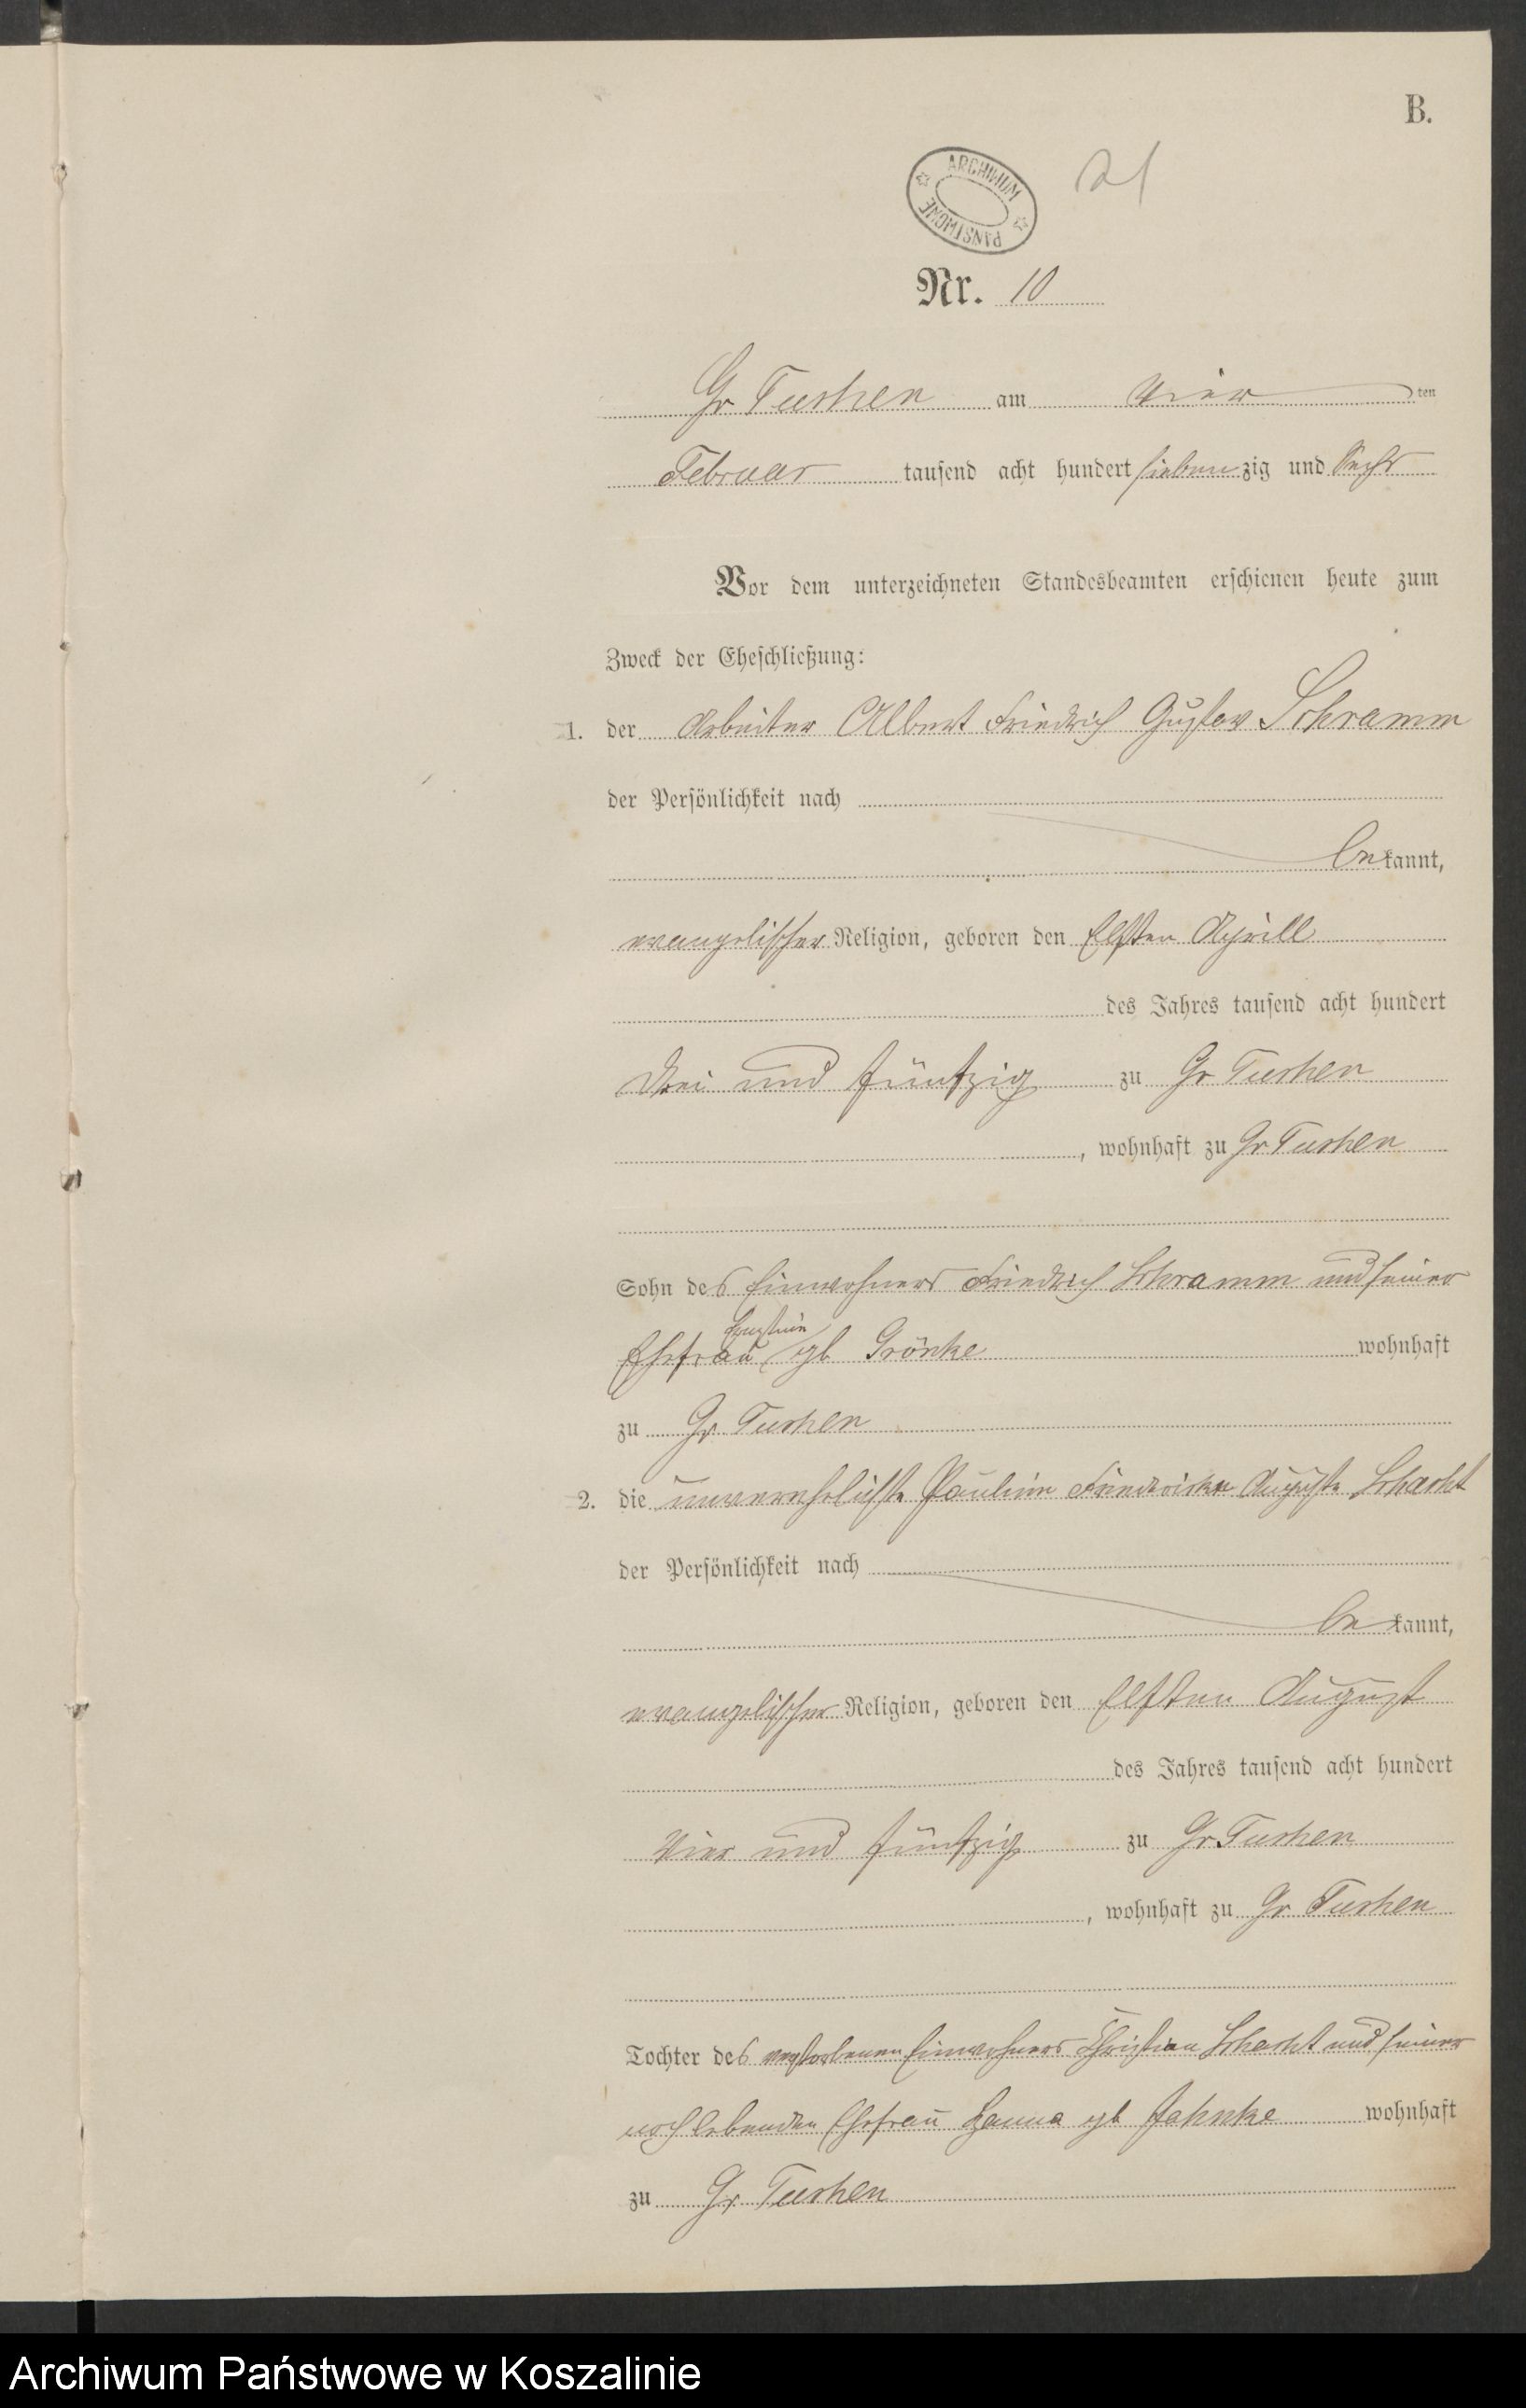 B.
ARCHIWUM PAŃSTWOWE
21
Nr. 10
Gr Tuchen am Vier ten
Februar tausend acht hundert siebenzig und Sechs
Vor dem unterzeichneten Standesbeamten erschienen heute zum
Zweck der Eheschließung:
1. der Arbeiter Albert Friedrich Gustav Schramm
der Persönlichkeit nach
bekannt,
evangelischer Religion, geboren den Elften Aprill
des Jahres tausend acht hundert
drei und fünfzig zu Gr Tuchen
, wohnhaft zu Gr Tuchen
Sohn des Einwohners Friedrich Schramm und seiner
Ernstine
Ehefrau gb Grönke wohnhaft
zu Gr Tuchen
2. die unverehelichte Pauline Friedricke Auguste Schacht
der Persönlichkeit nach
bekannt,
evangelischer Religion, geboren den Elften August
des Jahres tausend acht hundert
Vier und fünfzig zu Gr Tuchen
, wohnhaft zu Gr Tuchen
Tochter des verstorbenen Einwohners Christian Schacht und seiner
noch lebenden Ehefrau Hanna gb Jahnke wohnhaft
zu Gr Tuchen
Archiwum Państwowe w Koszalinie